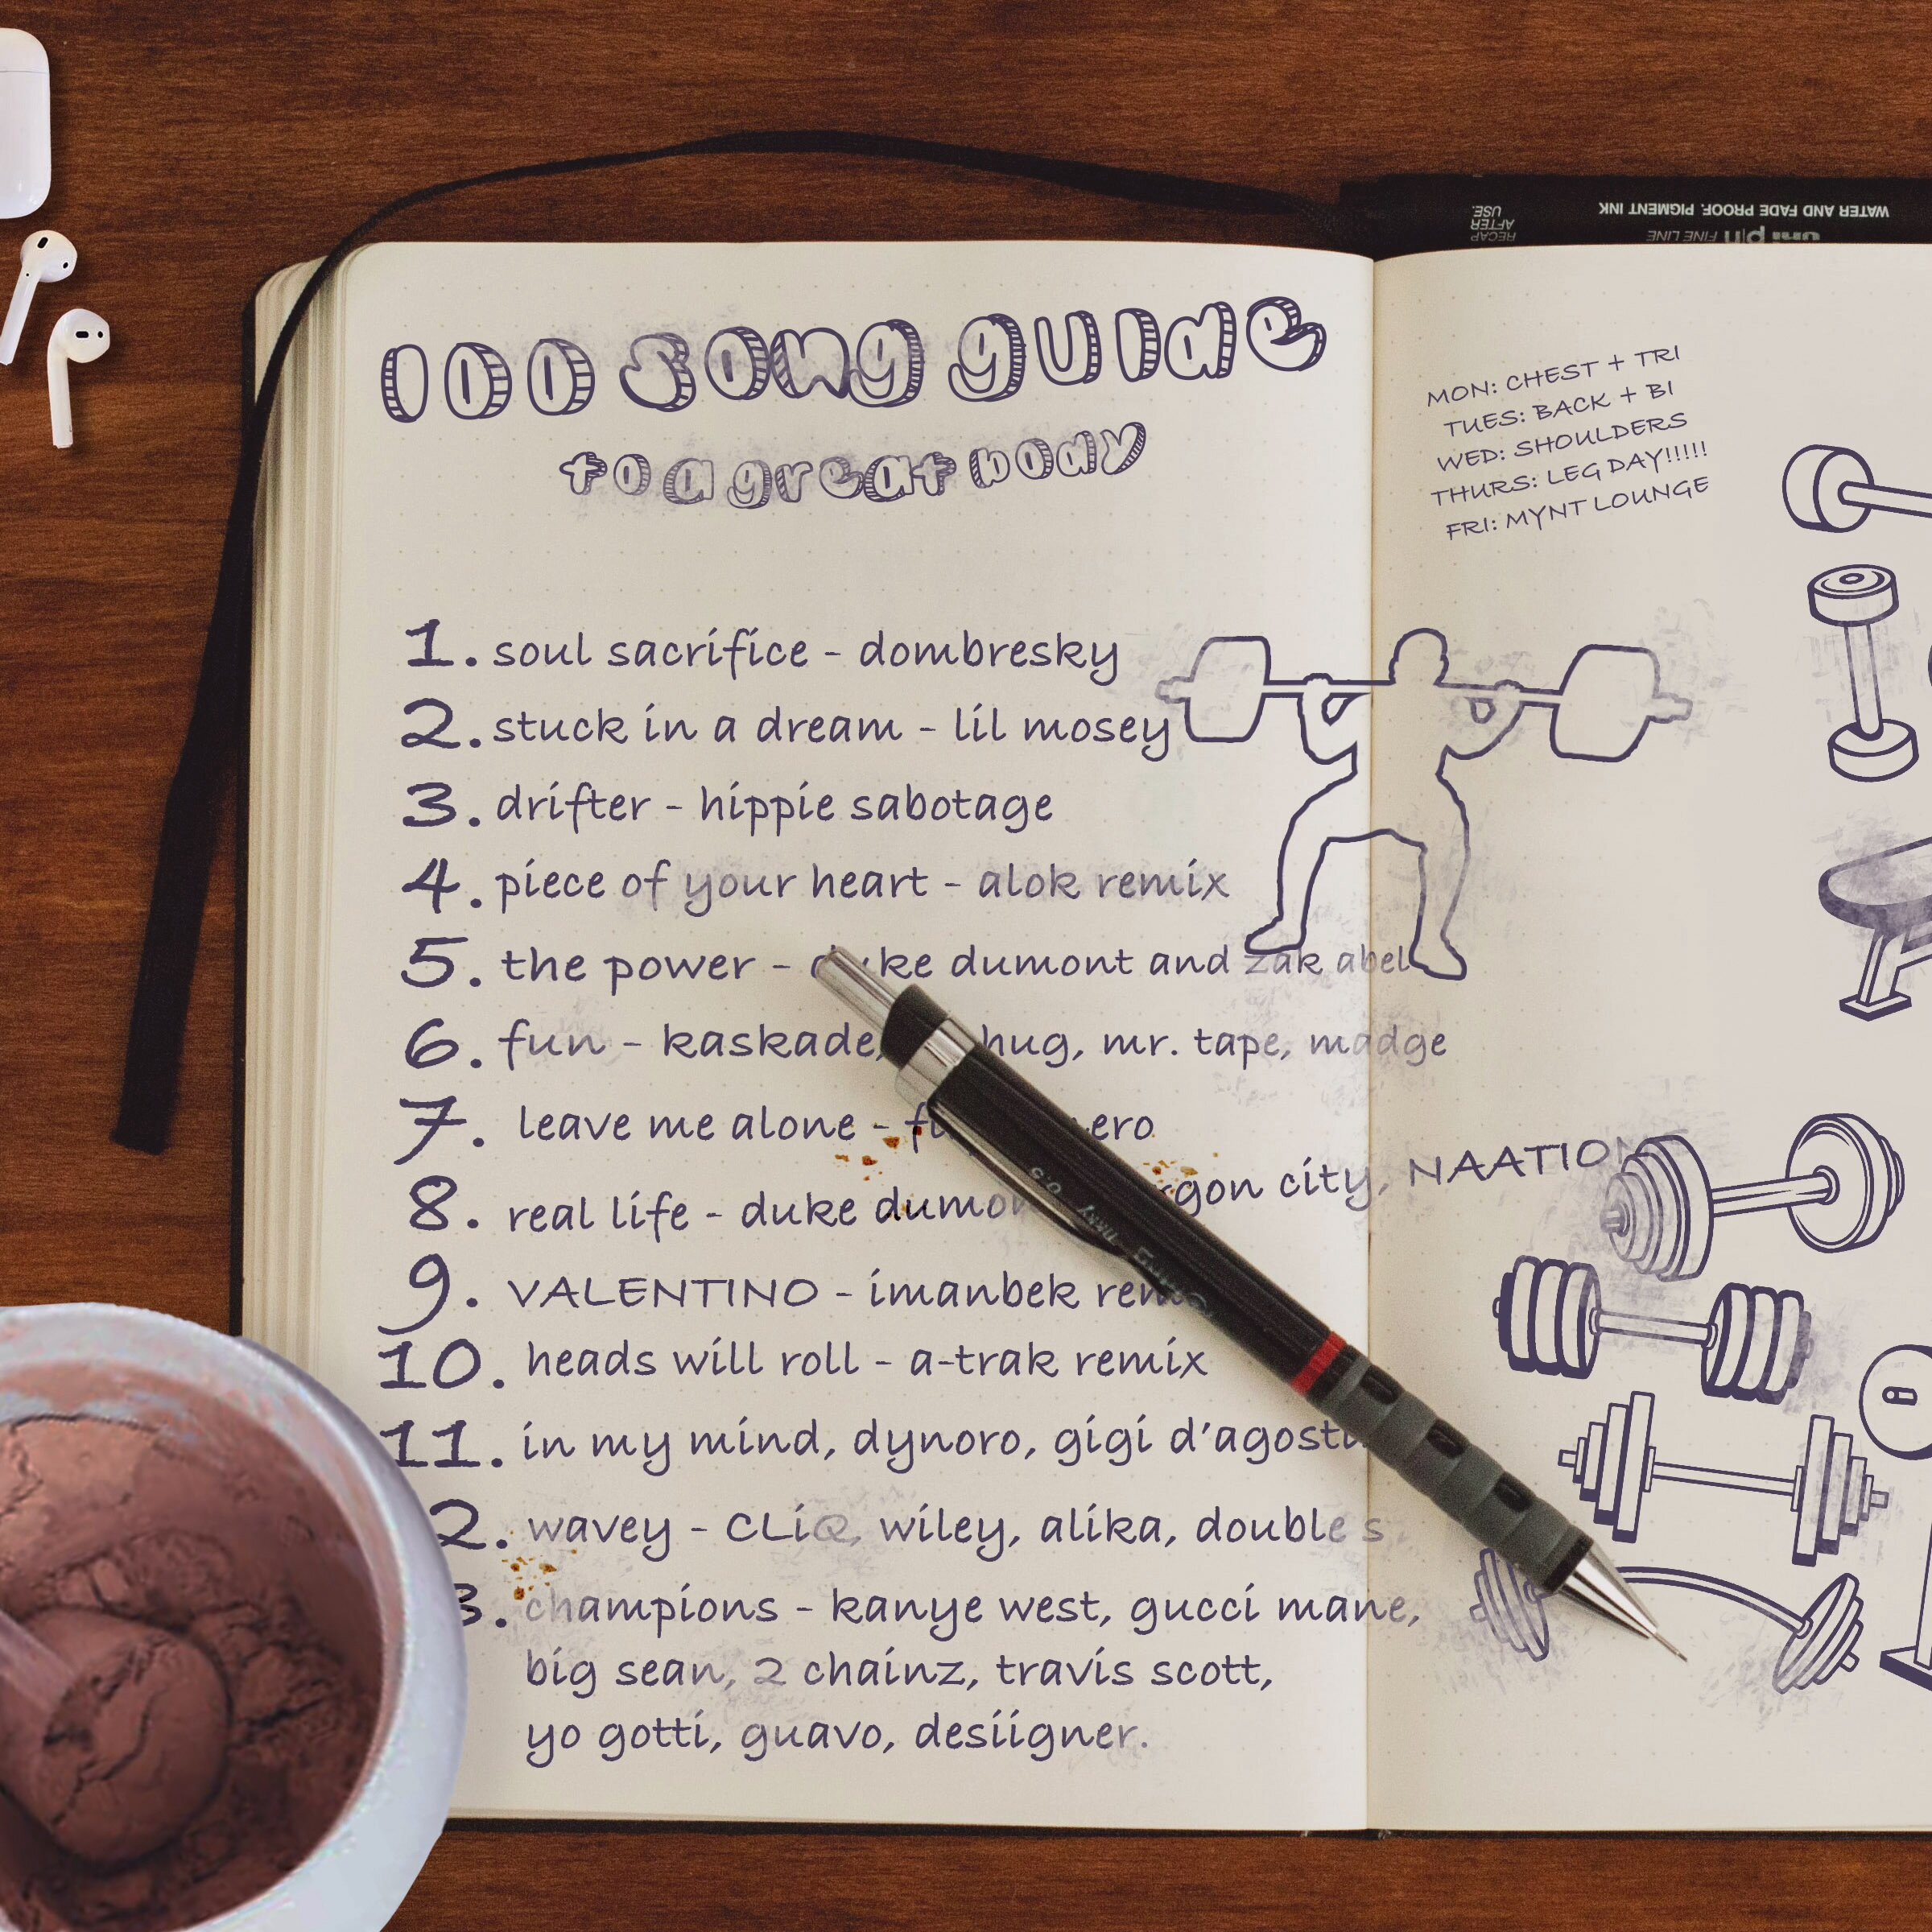 100 song guide
to a great body
1. soul sacrifice - dombresky
2. stuck in a dream - lil mosey
3. drifter - hippie sabotage
4. piece of your heart - alok remix
5. the power - duke dumont and zak abel
6. fun - kaskade, hug, mr. tape, madge
7. leave me alone -
8. real life - duke dumont gon city, NAATION
9. VALENTINO - imanbek remix
10. heads will roll - a-trak remix
11. in my mind, dynoro, gigi d'agosti
2. wavey - CLiQ, wiley, alika, double s
3. champions - kanye west, gucci mane,
big sean, 2 chainz, travis scott,
yo gotti, guavo, desiigner.
MON: CHEST + TRI
TUES: BACK + BI
WED: SHOULDERS
THURS: LEG DAY!!!!!
FRI: MYNT LOUNGE
WATER AND FADE PROOF. PIGMENT INK
uni pin FINE LINE
RECAP
AFTER
USE.